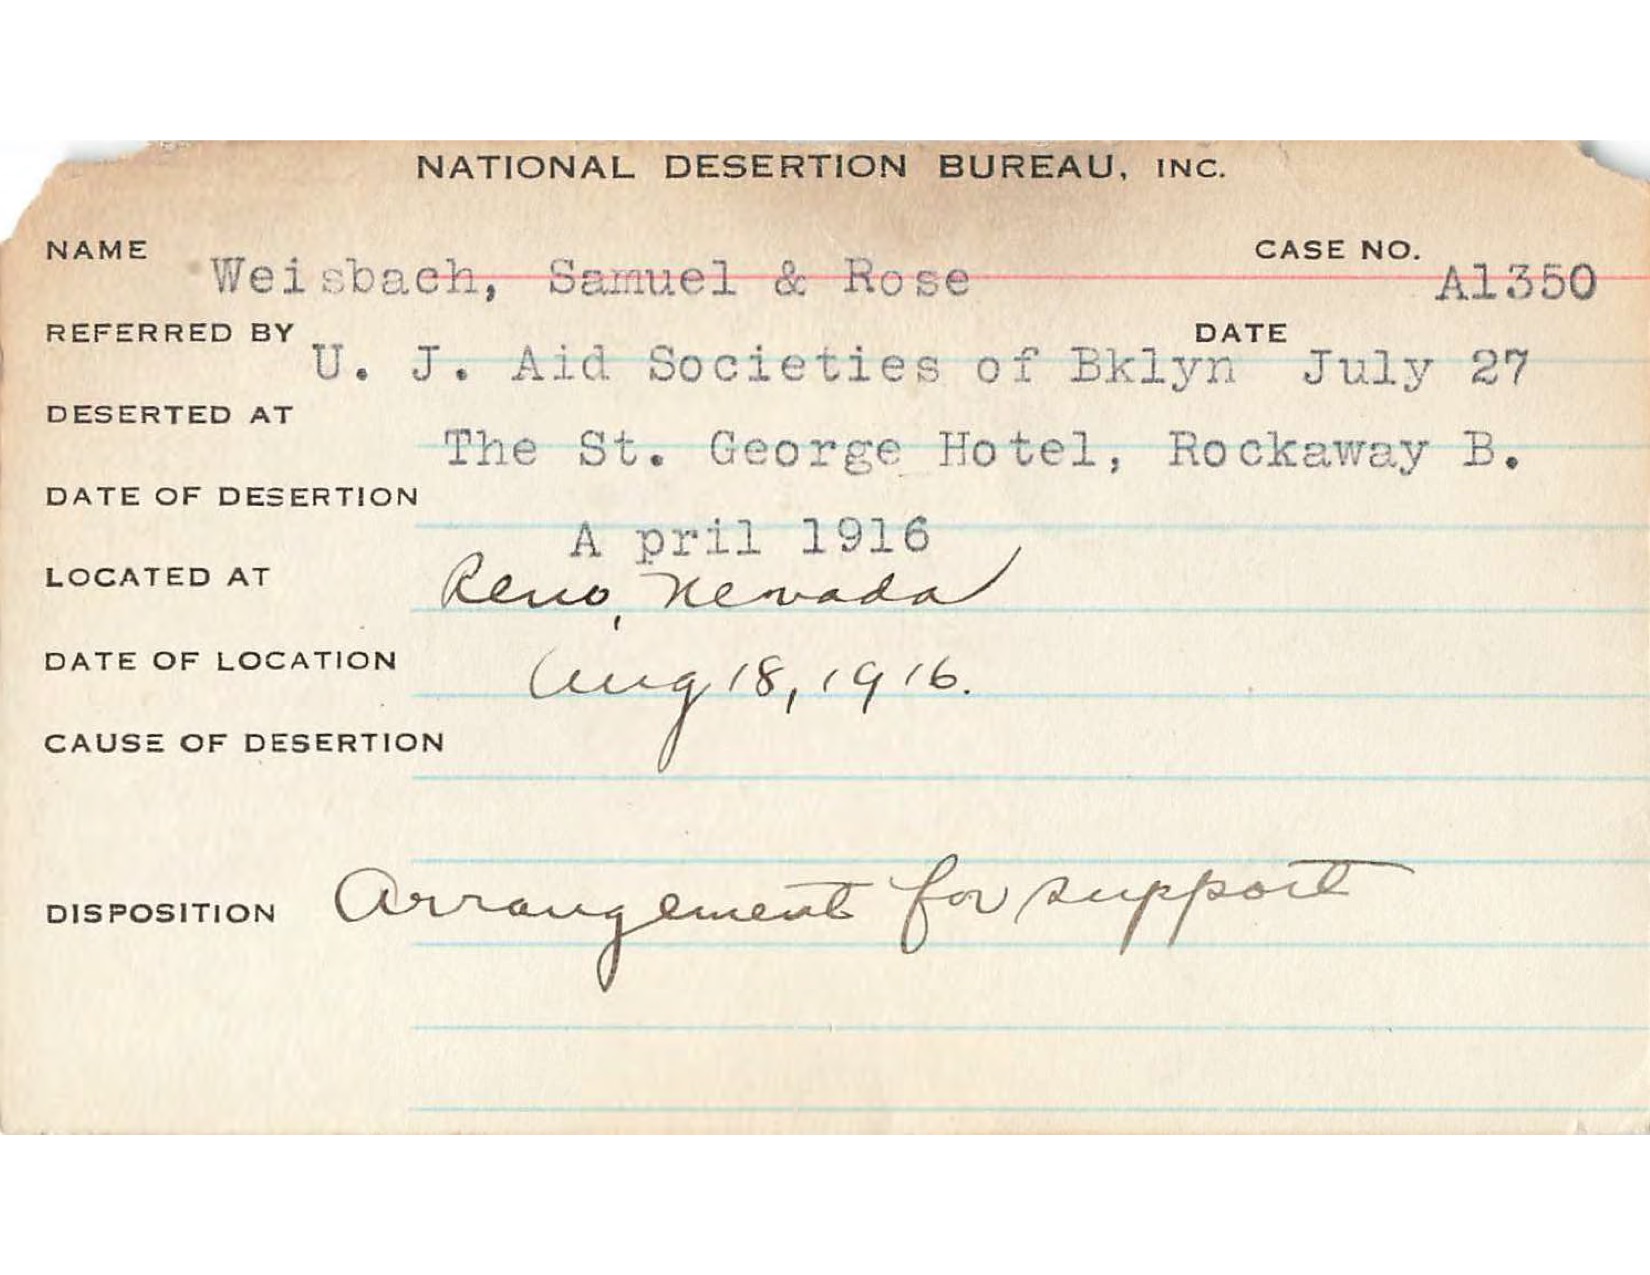 NATIONAL DESERTION BUREAU, INC.
NAME Weisbach, Samuel & Rose CASE NO. A1350
REFERRED BY U. J. Aid Societies of Bklyn DATE July 27
DESERTED AT The St. George Hotel, Rockaway B.
DATE OF DESERTION A pril 1916
LOCATED AT Reno, Nevada
DATE OF LOCATION Aug 18, 1916.
CAUSE OF DESERTION
DISPOSITION Arrangement for support